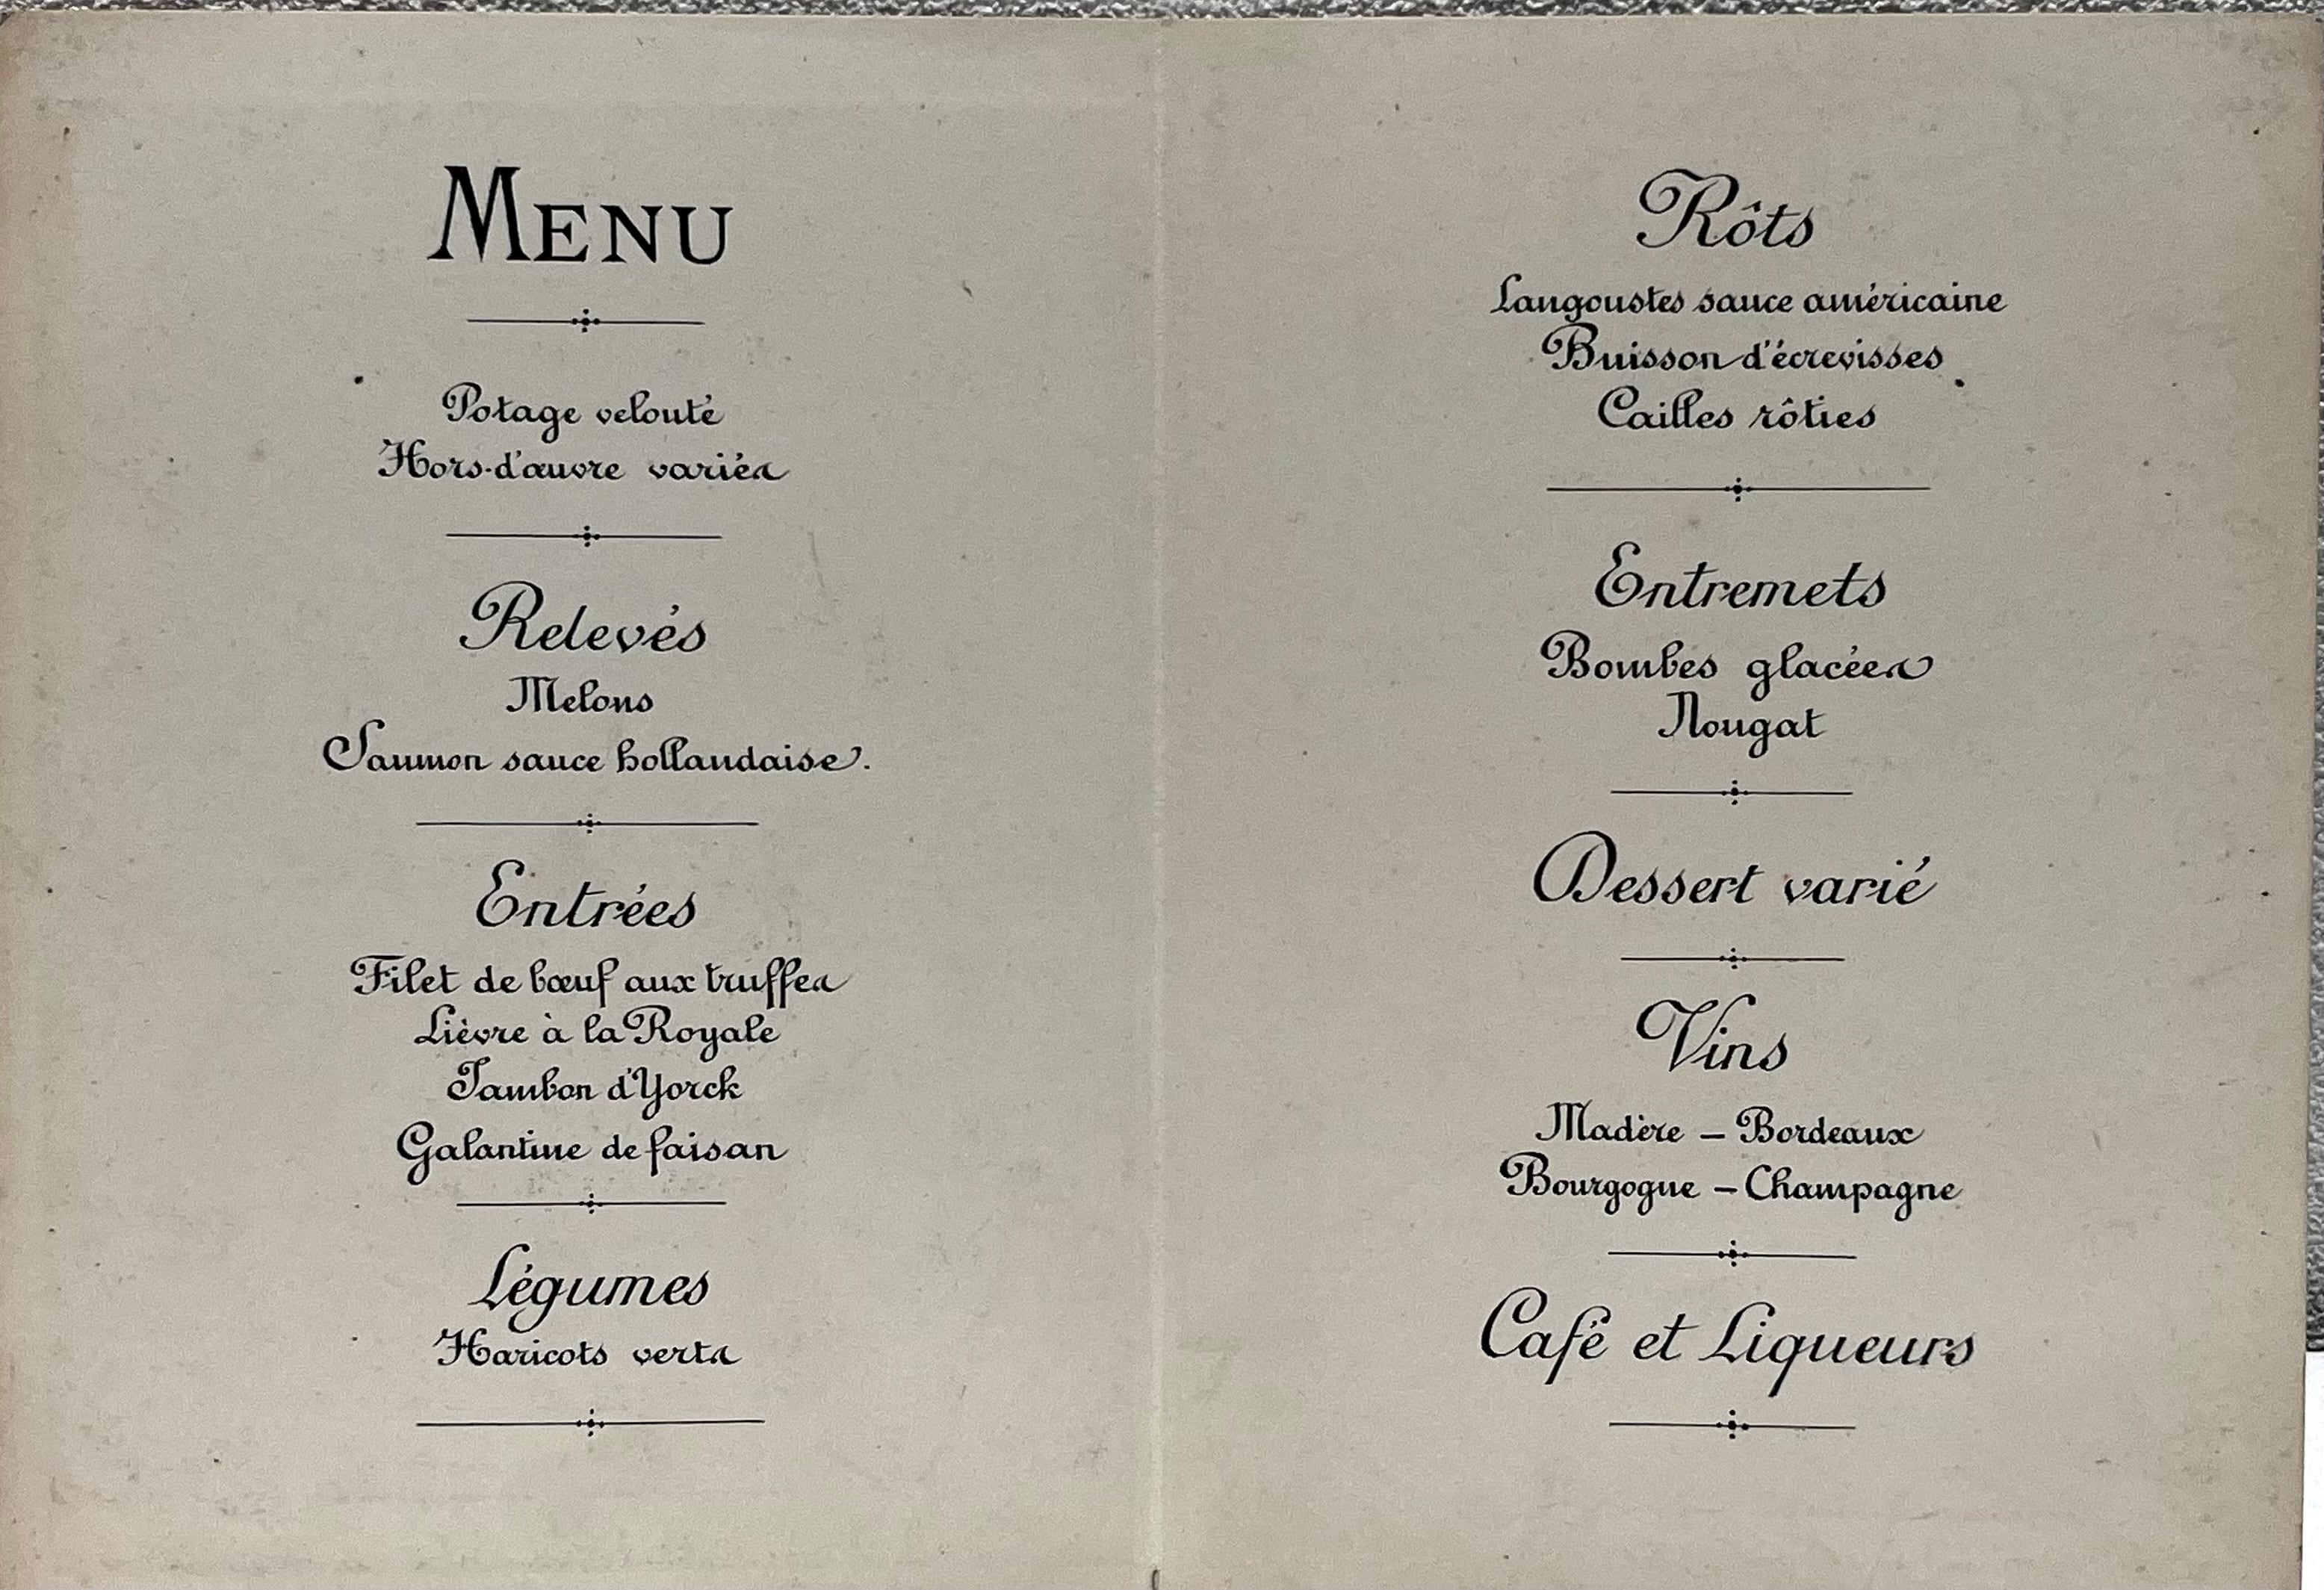 MENU
Potage velouté
Hors-d'œuvre variés
Relevés
Melons
Saumon sauce hollandaise.
Entrées
Filet de bœuf aux truffes
Lièvre à la Royale
Jambon d'Yorck
Galantine de faisan
Légumes
Haricots verts
Rôts
Langoustes sauce américaine
Buisson d'écrevisses
Cailles rôties
Entremets
Bombes glacées
Nougat
Dessert varié
Vins
Madère – Bordeaux
Bourgogne – Champagne
Café et Liqueurs